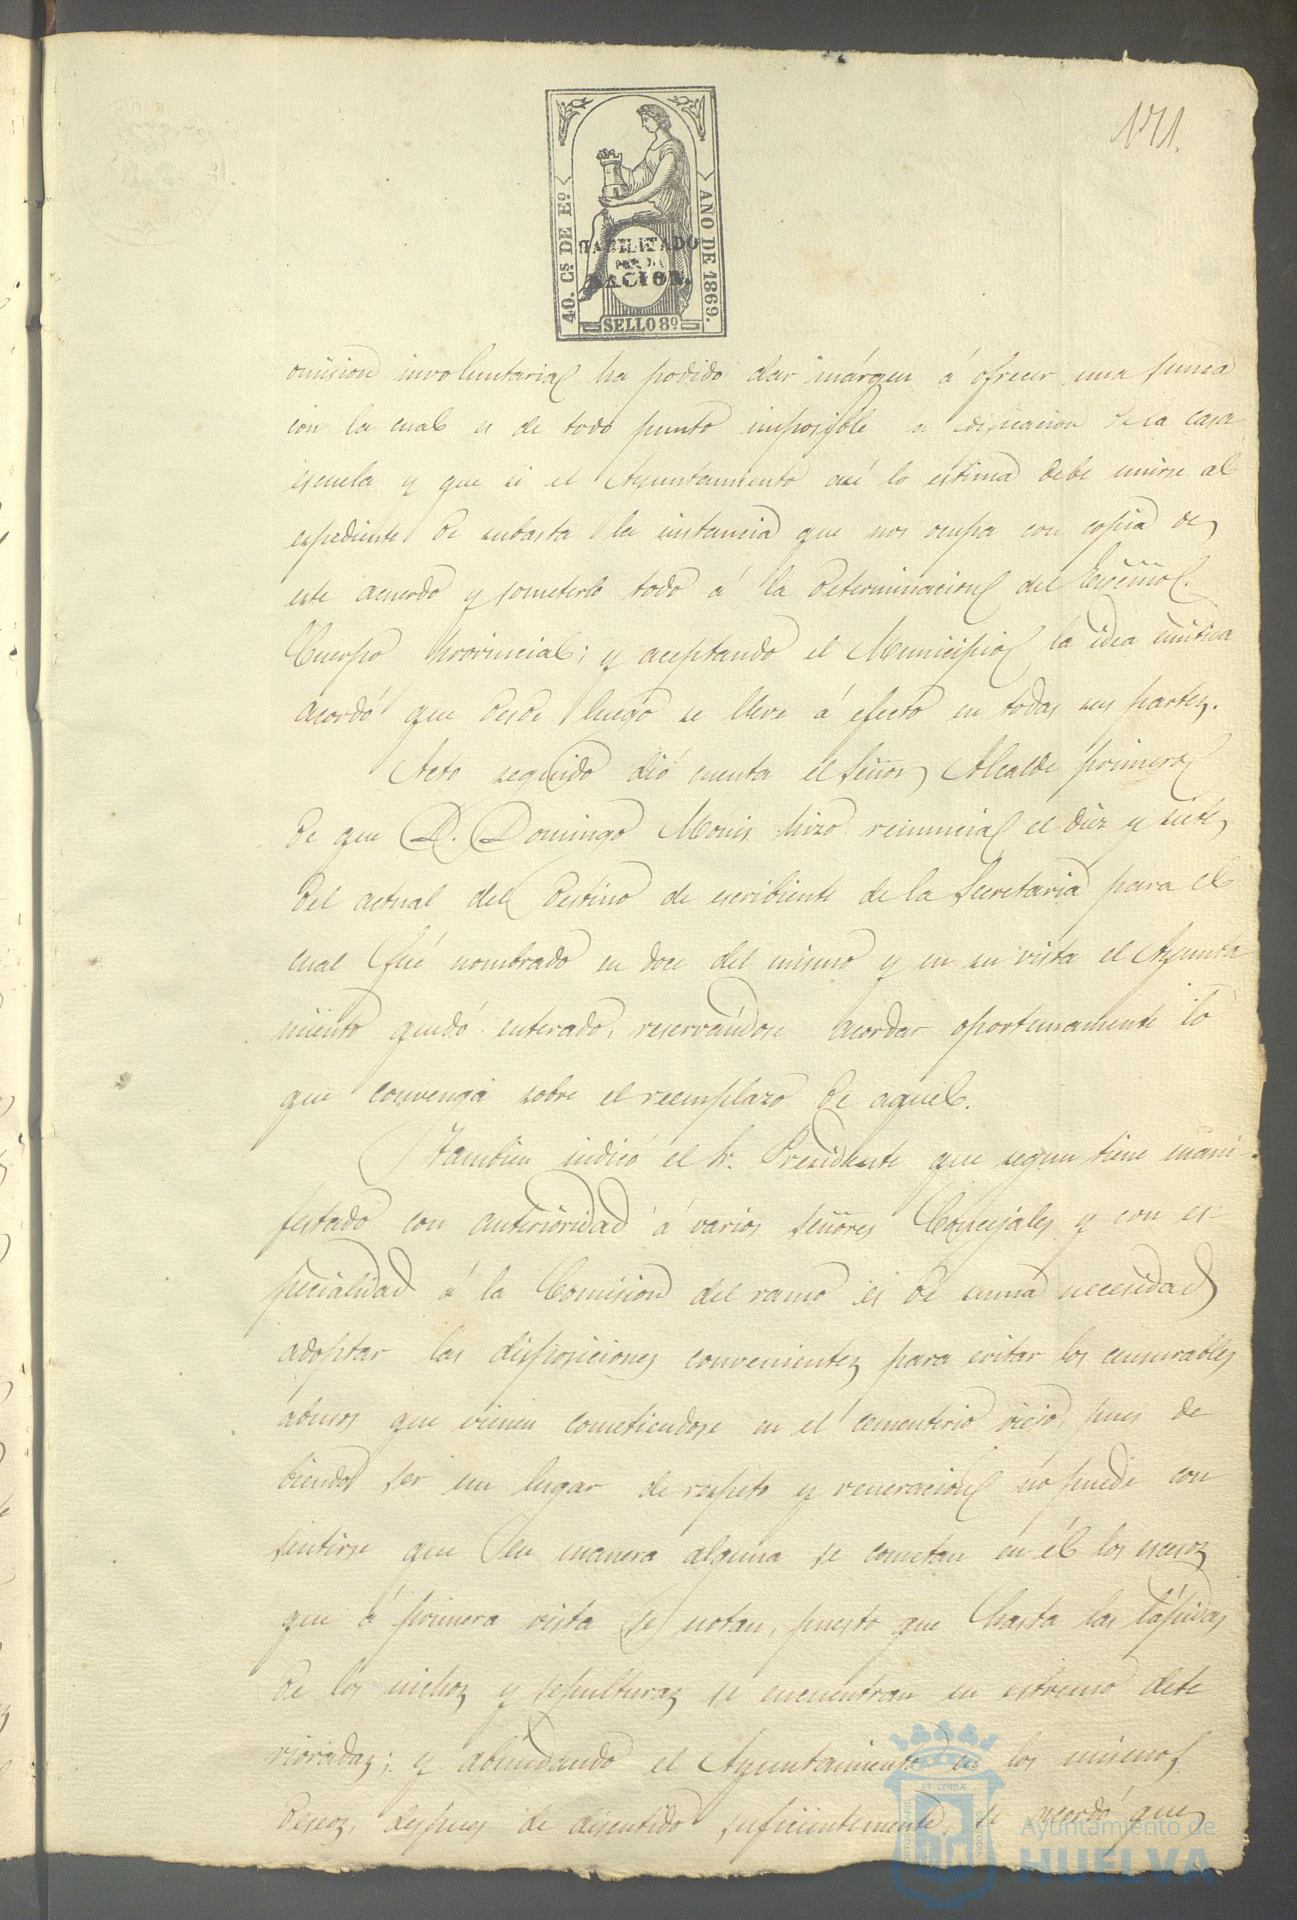 171.
40. Cs. DE Eo.
AÑO DE 1869.
HABILITADO
POR LA
NACION.
SELLO 8º
omision involuntaria ha podido dar márgen á ofrecer una suma
con la cual es de todo punto imposible la edificacion de la casa
escuela y que si el Ayuntamiento asi lo estima debe unirse al
espediente de subasta la instancia que nos ocupa con copia de
este acuerdo y someterlo todo á la determinacion del Escmo.
Cuerpo provincial; y aceptando el Municipio la idea emitida
acordó que desde luego se lleve á efecto en todas sus partes.
Acto seguido dió cuenta el Señor Alcalde primero
de que D. Domingo Monis hizo renuncia el diez y siete
del actual del destino de escribiente de la Secretaria para el
cual fué nombrado en doce del mismo y en su vista el Ayunta
miento quedó enterado, reservándose acordar oportunamente lo
que convenga sobre el reemplazo de aquel.
Tambien indicó el Sr. Presidente que segun tiene mani-
festado con anterioridad á varios Señores Concejales y con es-
pecialidad á la Comision del ramo es de suma necesidad
adoptar las disposiciones convenientes para evitar los censurables
abusos que vienen cometiendose en el cementerio viejo, pues de
biendo ser un lugar de respeto y veneracion no puede con
sentirse que en manera alguna se cometan en él los escesos
que á primera vista se notan, puesto que hasta las lápidas
de los nichos y sepulturas se encuentran en estremo dete
rioradas; y abundando el Ayuntamiento en los mismos
deseos, despues de discutido suficientemente, se acordó que
ET TERRÆ
Ayuntamiento de
HUELVA